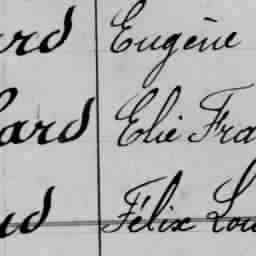 ard Eugène
lard Elie Fra
ud Félix Lou